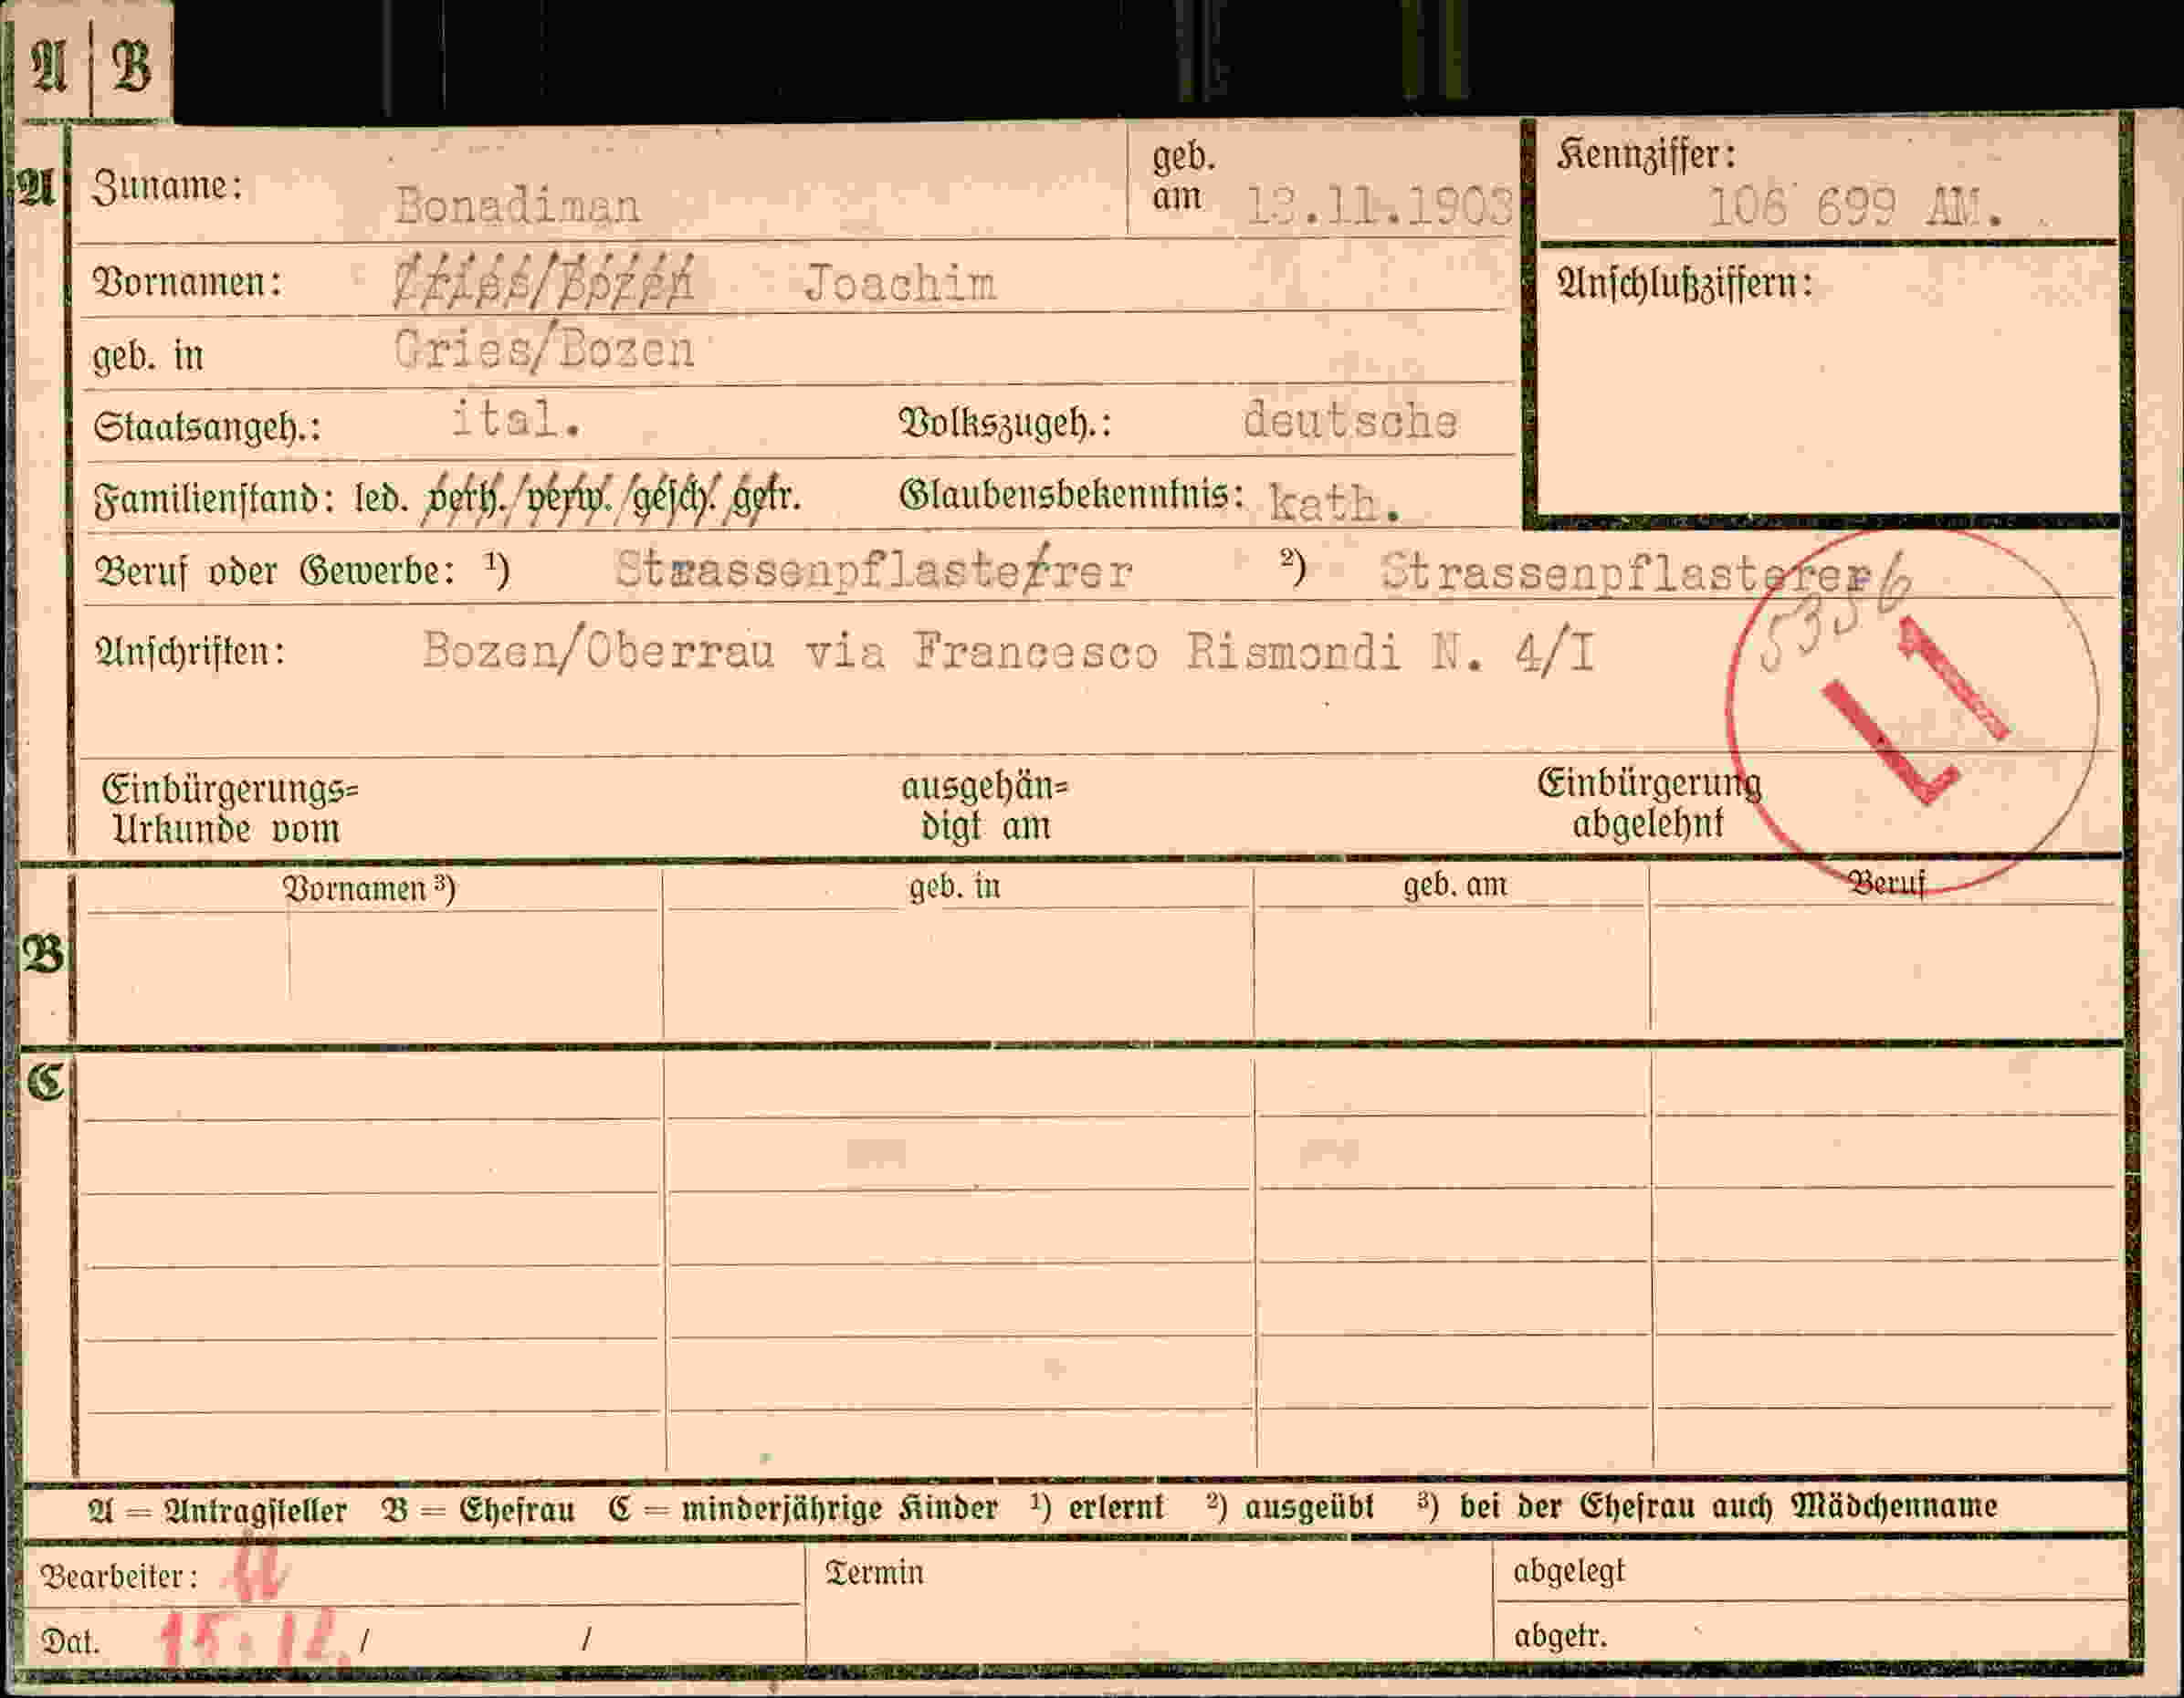 A B
A Zuname: Bonadiman geb. am .11.1903 Kennziffer: 106 699 AM.
Vornamen: Gries/Bozen Joachim Anschlußziffern:
geb. in Gries/Bozen
Staatsangeh.: ital. Volkszugeh.: deutsche
Familienstand: led. verh./verw./gesch. getr. Glaubensbekenntnis: kath.
Beruf oder Gewerbe: ¹) Strassenpflasterer ²) Strassenpflasterer
5356
Anschriften: Bozen/Oberrau via Francesco Rismondi N. 4/I
L1
Einbürgerungs= ausgehän= Einbürgerung
Urkunde vom digt am abgelehnt
B Vornamen ³) geb. in geb. am Beruf
C
A = Antragsteller B = Ehefrau C = minderjährige Kinder ¹) erlernt ²) ausgeübt ³) bei der Ehefrau auch Mädchenname
Bearbeiter: Termin abgelegt
Dat. 15.12. / / abgetr.